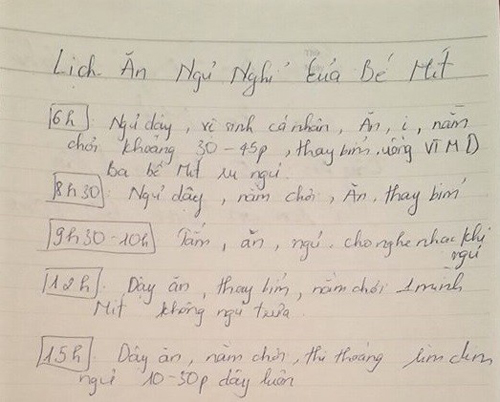 Lịch Ăn Ngủ Nghỉ Của Bé Mít
6h Ngủ dậy, vệ sinh cá nhân, Ăn, ị, nằm
chơi khoảng 30-45p, thay bỉm, uống VTM D
Ba bế Mít ru ngủ.
8h30 Ngủ dậy, nằm chơi, Ăn, thay bỉm
9h30-10h Tắm, ăn, ngủ. cho nghe nhạc khi
ngủ
12h. Dậy ăn, thay bỉm, nằm chơi 1 mình
Mít không ngủ trưa.
15h. Dậy ăn, nằm chơi, thi thoảng lim dim
ngủ 10-30p dậy luôn